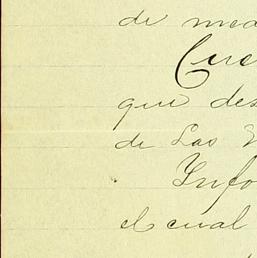 de med
Cue
que des
de Las V
Info
el cual